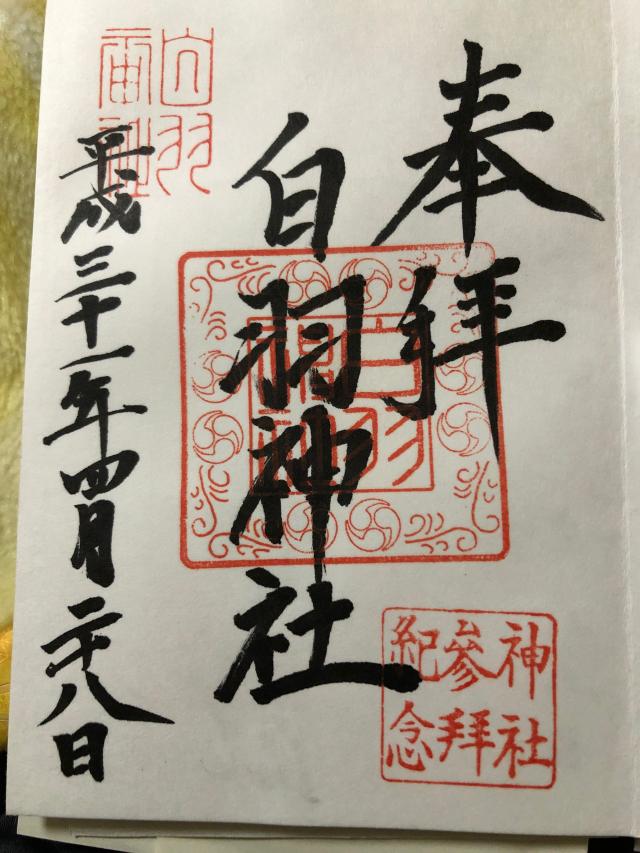 奉拝
白羽神社
平成三十一年四月二十八日
白羽
神社
神社
参拜
紀念